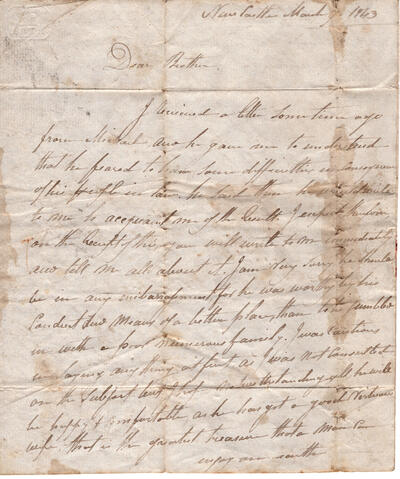 New Castle March 1843
Dear Brother
I Received a letter some time ago
from Michael and he gave me to understand
that he feared to have some difficulty in consequence
of his people in law. he said then he would write
to me to acquaint me of the Result I expect
on the Receipt of this you will write to me immediately
and tell me all about it. I am very sorry he should
be in any embarrassment for he was worthy by his
Conduct and Means of a better place than to be
in with a poor numerous family. I was cautious
in saying any thing at first as I was not consulted
on the Subject but I hope he will
be happy & comfortable as he has got a good
wife, that is the greatest treasure that a Man can
enjoy on earth